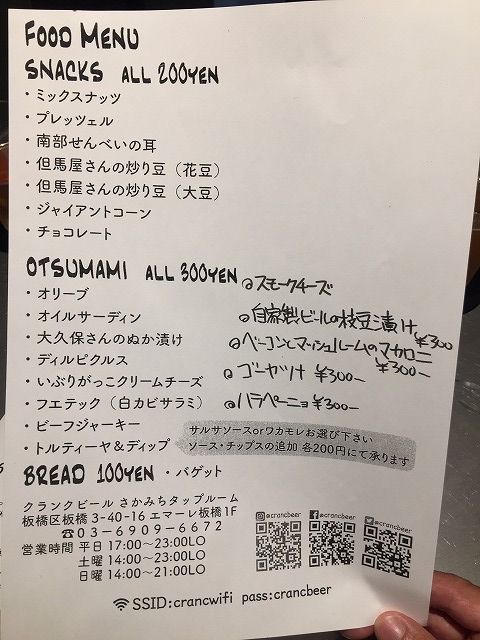 FOOD MENU
SNACKS ALL 200YEN
・ミックスナッツ
・プレッツェル
・南部せんべいの耳
・但馬屋さんの炒り豆（花豆）
・但馬屋さんの炒り豆（大豆）
・ジャイアントコーン
・チョコレート
OTSUMAMI ALL 300YEN
・オリーブ
・オイルサーディン
・大久保さんのぬか漬け
・ディルピクルス
・いぶりがっこクリームチーズ
・フエテック（白カビサラミ）
・ビーフジャーキー
・トルティーヤ＆ディップ
◎スモークチーズ
◎自家製ビールの枝豆漬け ¥300
◎ベーコンとマッシュルームのマカロニ ¥300-
◎ゴーヤツケ ¥300-
◎ハラペーニョ ¥300-
サルサソースorワカモレお選び下さい
ソース・チップスの追加 各200円にて承ります
BREAD 100YEN ・バゲット
クランクビール さかみちタップルーム
板橋区板橋 3-40-16 エマーレ板橋1F
☎03-6909-6672
営業時間 平日 17:00〜23:00LO
土曜 14:00〜23:00LO
日曜 14:00〜21:00LO
@crancbeer
@crancbeer
@crancbeer
SSID:crancwifi pass:crancbeer